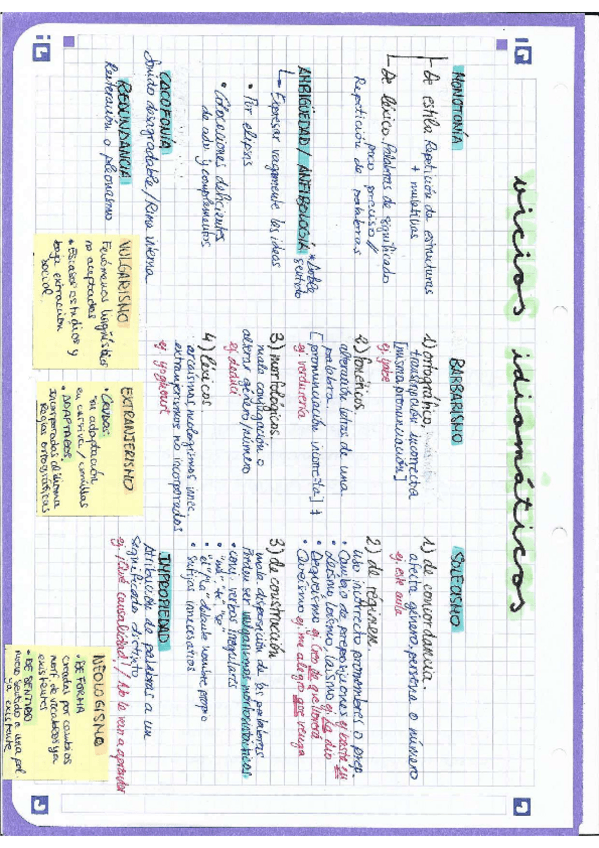 vicios idiomáticos
MONOTONÍA
De estilo Repetición de estructuras
+ muletillas
De léxico. Palabras de significado
poco preciso //
Repetición de palabras
AMBIGÜEDAD / ANFIBOLOGÍA * doble
sentido
Expresar vagamente las ideas
• Por elipsis
• Colocaciones deficientes
de adv y complementos
CACOFONÍA
Sonido desagradable / Rima interna
REDUNDANCIA
Reiteración o pleonasmo
BARBARISMO
1) ortográfico,
transcripción incorrecta
[misma pronunciación]
ej. yabe
2) fonéticos
alteración letras de una
palabra.
[pronunciación incorrecta] ≠
ej verdurería
3) morfológicos.
mala conjugación o
alterar género/número
ej dedici
4) léxicos
arcaísmos neologismos innec.
extranjerismos no incorporados
ej yoghourt
SOLECISMO
1) de concordancia.
afecta género, persona o número
ej. este aula
2) de régimen.
uso incorrecto pronombres o prep.
• Cambio de preposiciones ej
• Leísmo loísmo, laísmo ej La dio
• Dequeísmo ej creo de que lloverá
• Queísmo ej me alegro que venga
3) de construcción
mala disposición de las palabras
Pueden ser vulgarismos morfosintácticos
• conj. verbos irregulares
• "me" "te" "se"
• "el"/"la" delante nombre propio
• Sufijos innecesarios
IMPROPIEDAD
Atribución de palabras a un
significado distinto
ej. ¡Qué causalidad! / No la veo a aprender
VULGARISMO
Fenómenos lingüísticos
no aceptados
• Escasos estudios y
baja extracción
social.
EXTRANJERISMO
• CRUDOS:
sin adaptación
en cursiva / comillas
• ADAPTADOS,
Incorporados al idioma
Reglas ortográficas
NEOLOGISMO
• DE FORMA
Creadas por cambios
morf. de vocablos ya
existentes
• DE SENTIDO
nuevo sentido a una pal.
ya existente